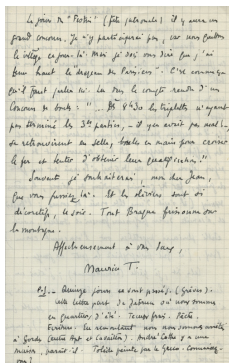 Le jour du "Festin" (fête patronale) il y aura un
grand concours. Je n'y participerai pas, car nous quittons
le village ce jour-là. Mais je dois vous dire que j'ai
tenu haut le drapeau de Parisien". C'est comme ça
qu'il faut parler ici. Lu dans le compte-rendu d'un
Concours de boules : "... à 8h30 les triplettes n'ayant
pas terminé les 3es parties, il y en avait pas mal
se retrouvèrent en selle, boules en main pour croiser
le fer et tenter d'obtenir leur qualification."
Souvent je souhaiterais, mon cher Jean,
que vous fussiez là. Et les oliviers sont si
décoratifs, le soir. Tout Bragua frissonne sur
la montagne.
Affectueusement à vous deux,
Maurice T.
P.S. Quinze jours se sont passés. (Grèves).
Cette lettre part de où nous sommes
en quartiers, d'été. Temps frais. Pêche.
Ecriture. En remontant nous nous sommes arrêtés
à Gordes (entre Apt et Cavaillon). André Lhote y a une
maison, paraît-il. Tolède peinte par le Greco. Connaissez-
vous ?